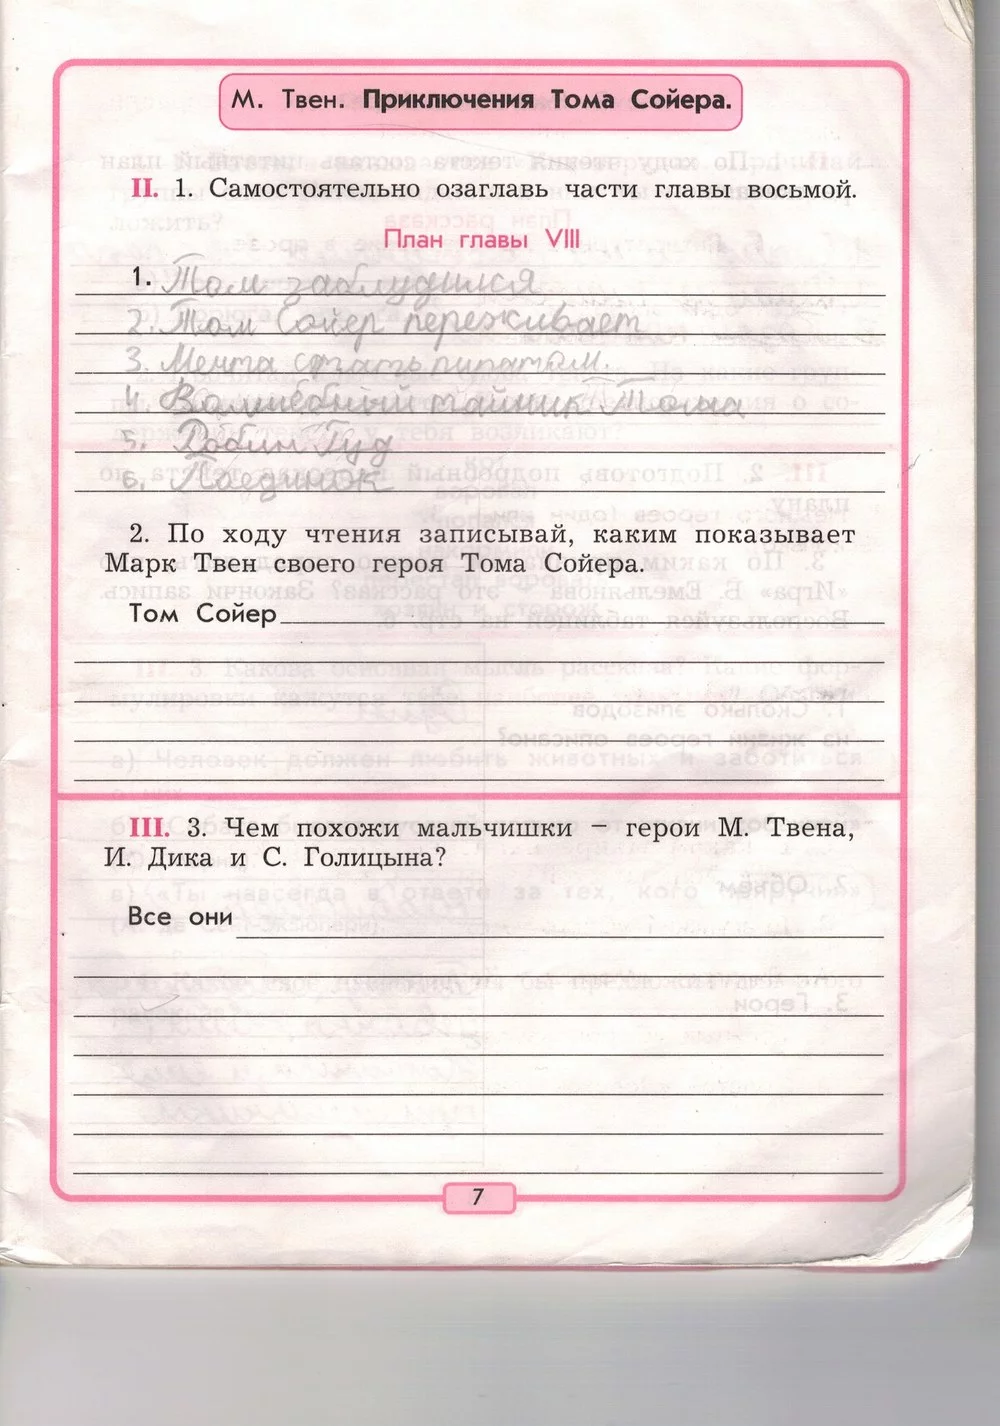 М. Твен. Приключения Тома Сойера.
II. 1. Самостоятельно озаглавь части главы восьмой.
План главы VIII
1. Том заблудился
2. Том Сойер переживает
3. Мечта стать пиратом.
4. Волшебный тайник Тома
5. Робин Гуд
6. Поединок
2. По ходу чтения записывай, каким показывает
Марк Твен своего героя Тома Сойера.
Том Сойер
III. 3. Чем похожи мальчишки – герои М. Твена,
И. Дика и С. Голицына?
Все они
7